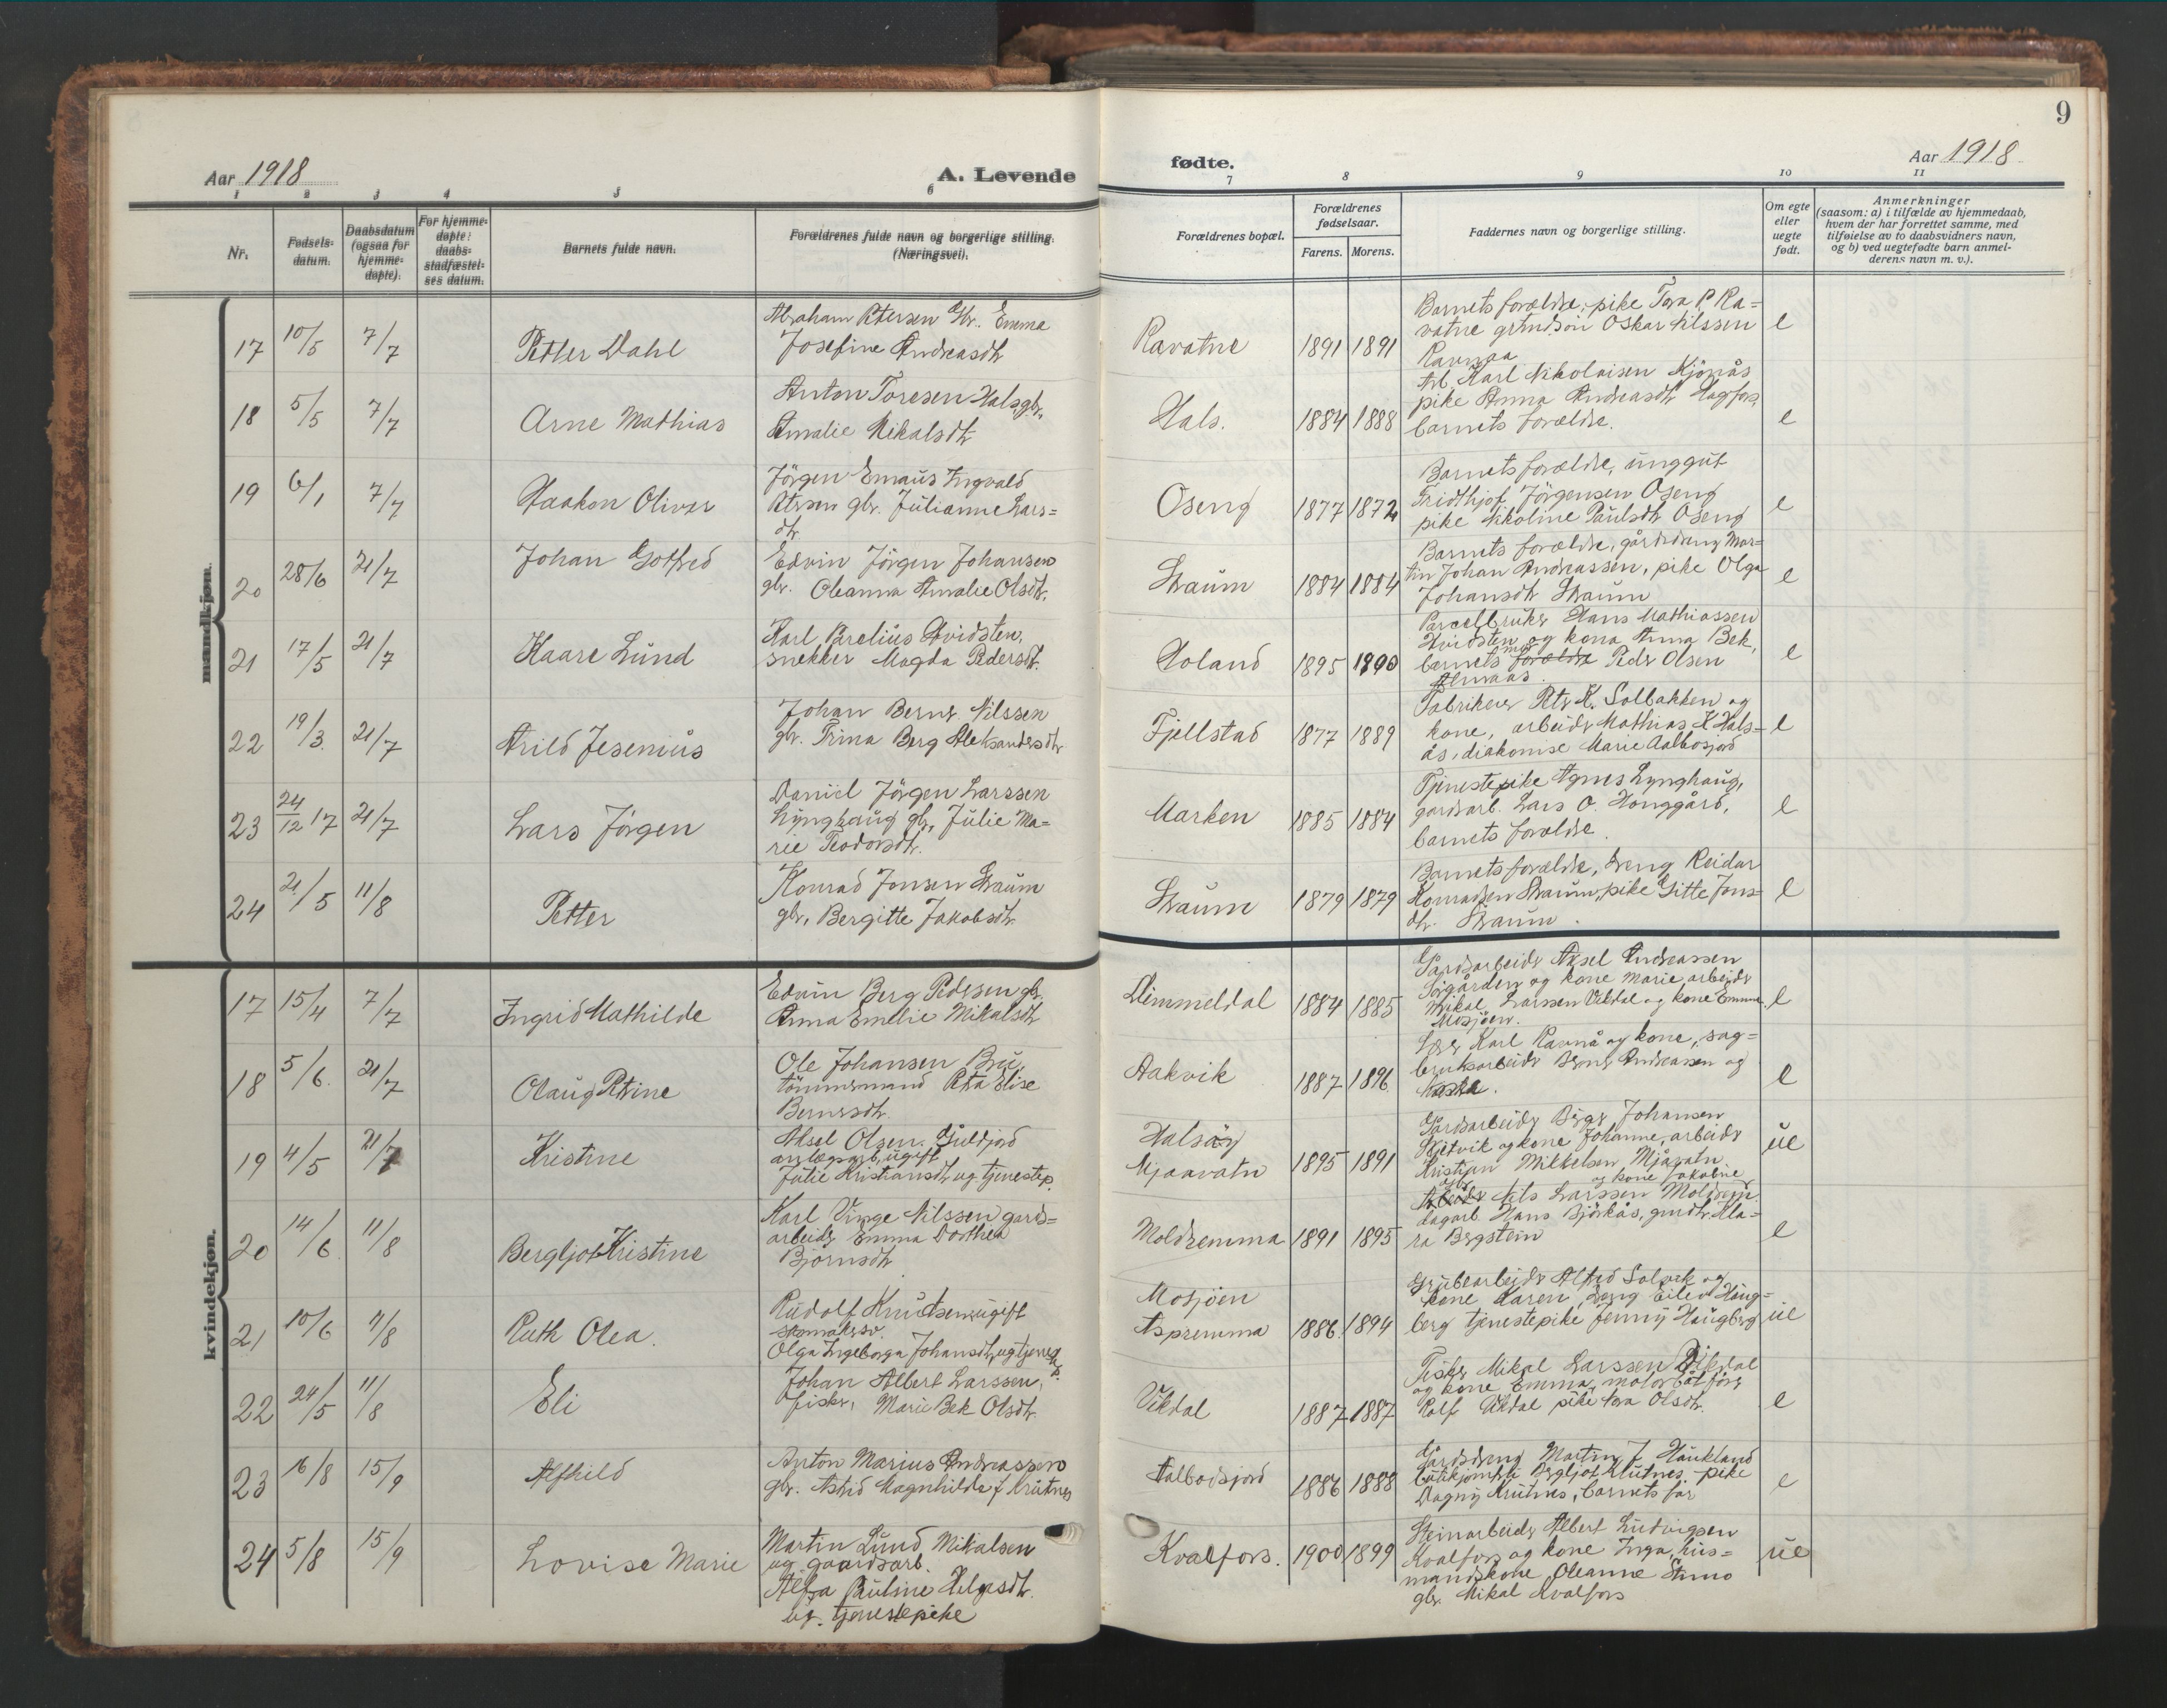 9
Aar 1918
A. Levende
fødte.
Aar 1918
1 2 3 4 5 6 7 8 9 10 11
Nr.
Fødsels-
datum.
Daabsdatum
(ogsaa for
hjemme-
døpte).
For hjemme-
døpte:
daabs-
stadfæstel-
ses datum.
Barnets fulde navn.
Forældrenes fulde navn og borgerlige stilling.
(Næringsvei).
Forældrenes bopæl.
Forældrenes
fødselsaar.
Farens. Morens.
Faddernes navn og borgerlige stilling.
Om egte
eller
uegte
født.
Anmerkninger
(saasom: a) i tilfælde av hjemmedaab,
hvem der har forrettet samme, med
tilføielse av to daabsvidners navn,
og b) ved uegtefødte barn anmel-
derens navn m. v.).
mandkjøn.
17 10/5 7/7 Petter Dahl
Abraham Petersen gbr. Emma
Josefine Andreasdtr
Ravatne 1891 1891
Barnets forældre, pike Tora P. Ra-
vatne grdmdsøn Oskar Nilssen
Ravnaa
e
18 5/5 7/7 Arne Mathias
Anton Toresen Hals gbr.
Amalie Mikalsdtr
Hals. 1884 1888
Arb. Karl Nikolaisen Kjønås
pike Anna Andreasdtr Hagfors,
barnets forældre.
e
19 6/1 7/7 Haakon Oliver
Jörgen Emaus Ingvald
Petersen gbr. Julianne Lars-
dtr
Oseng 1877 1872
Barnets forældre, unggut
Fridthjof Jörgensen Oseng
pike Nikoline Paulsdtr Oseng
e
20 28/6 21/7 Johan Gotfred
Edvin Jörgen Johansen
gbr. Oleanna Amalie Olsdtr.
Straum 1884 1884
Barnets forældre, gårdsdreng Mar-
tin Johan Andreassen, pike Olga
Johansdtr Straum
e
21 17/5 21/7 Kaare Lund
Karl Parelius Hvidsten,
snekker Magda Pedersdtr.
Holand 1895 1890
Parcelbruker Hans Mathiassen
Hvidsten og kona Anna Bek,
barnets mor forældre Peder Olsen
Almaas.
e
22 19/3 21/7 Arild Jesenius
Johan Berner Nilssen
gbr. Trina Berg Aleksandersdtr
Fjellstad 1877 1889
Fabrikeier Peter K. Solbakken og
kone, arbeider Mathias K Hals-
ås, diakonisse Marie Aalbosjord
e
23 24/12 17 21/7 Lars Jörgen
Daniel Jörgen Larssen
Lynghaug gbr, Julie Ma-
rie Teodorsdtr.
Marken 1885 1884
Tjenestepike Agnes Lynghaug,
gardsarb. Lars O. Honggård,
barnets forældre.
e
24 21/5 11/8 Petter
Konrad Jonsen Straum
gbr, Bergitte Jakobsdtr.
Straum 1879 1879
Barnets forældre, dreng Reidar
Konradsen Straum, pike Gitte Jons-
dtr. Straum.
e
kvindekjøn.
17 15/4 7/7 Ingrid Mathilde
Edvin Berg Pedersen gbr.
Anna Emelie Mikalsdtr
Dimmeldal 1884 1885
Gardsarbeider Aksel Andreassen
Sörgården og kone Marie, arbeider
Mikal Larssen Vikdal og kone Emma
Mosjöen.
e
18 5/6 21/7 Olaug Petrine
Ole Johansen Bru,
tömmermand Petra Elise
Bernersdtr.
Aakvik 1887 1896
Karl Ravnå og kone, sag-
bruksarbeider Berner Andreassen og
e
19 4/5 21/7 Kristine
Aksel Olsen Guldjord
anlægsarb, ugift
Julie Kristiansdtr ug. tjenestep.
Halsöy
Mjaavatn 1895 1891
Gardsarbeider Birger Johansen
og kone Johanne, arbeider
Kristjan Mikkelsen Mjåvatn
og kone Jakobine
ue
20 14/6 11/8 Bergljot Kristine
Karl Vinge Nilssen gards-
arbeider Emma Dorthea
Björnsdtr
Moldremma 1891 1895
Nils Larssen Moldrem
dagarb. Hans Björkås, gmdtr. Kla-
ra Bergstein
e
21 10/6 11/8 Ruth Olea.
Rudolf Knutsen ugift
skomakersv.
Olga Ingeborga Johansdtr, ug tjenestep.
Mosjöen
Aspremma 1886 1894
Grubearbeider Alfred Solvek og
kone Karen, dreng Eilev Haug-
berg tjenestepike Jenny Haugberg
ue
22 24/5 11/8 Eli
Johan Albert Larssen,
fisker, Marie Bek Olsdtr.
Vikdal 1887 1887
Fisker Mikal Larssen Vikdal
og kone Emma, motorbåtförer
Rolf Vikdal pike Tora Olsdtr.
e
23 16/8 15/9 Alfhild
Anton Marius Andreassen
gbr. Astrid Magnhilda f. Krutnes
Aalbodsjord 1886 1888
Gårdsdreng Martin J. Haukland
butikjomfru Bergljot Krutnes, pike
Dagny Krutnes, barnets far
e
24 5/8 15/9 Lovise Marie
Martin Lund Mikalsen
ug gaardsarb.
Alfra Pauline Helgesdtr.
ug. tjenestepike
Kvalfors. 1900 1899
Steinarbeider Albert Ludvigsen
Kvalfors og kone Inga, hus-
mandskone Oleanne Stuvo
gbr. Mikal Kvalfors
ue